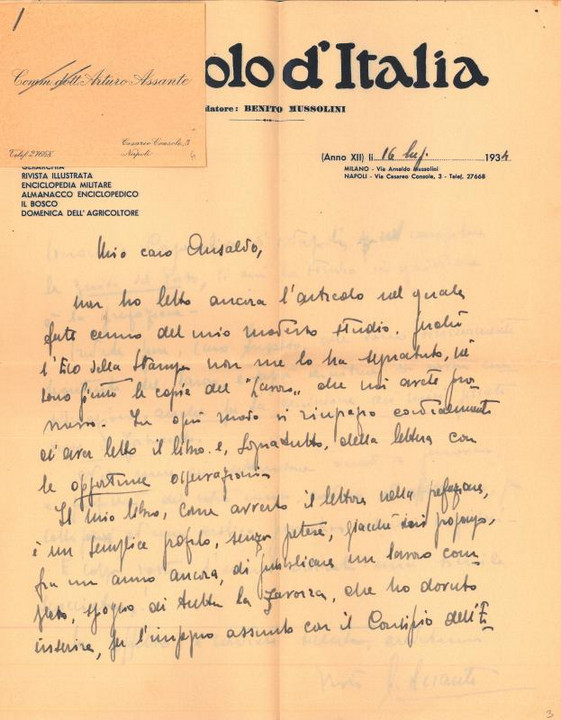 Comm. dott. Arturo Assante
Telef. 27668
Cesareo Console, 3
Napoli
olo d'Italia
datore: BENITO MUSSOLINI
(Anno XII) li 16 lug. 1934
MILANO - Via Arnaldo Mussolini
NAPOLI - Via Cesareo Console, 3 - Telef. 27668
GERARCHIA
RIVISTA ILLUSTRATA
ENCICLOPEDIA MILITARE
ALMANACCO ENCICLOPEDICO
IL BOSCO
DOMENICA DELL'AGRICOLTORE
Mio caro Ansaldo,
non ho letto ancora l'articolo nel quale
fate cenno del mio modesto studio. Perché
l'Eco della Stampa non me lo ha segnalato, né
sono giunte le copie del "Lavoro", che mi avete pro
messo. In ogni modo vi ringrazio cordialmente
di aver letto il libro e, soprattutto, della lettera con
le opportune osservazioni.
Il mio libro, come avverto il lettore nella prefazione,
è un semplice profilo, senza pretese, giacché mi propongo,
fra un anno ancora, di pubblicare un lavoro com
pleto, spoglio di tutta la zavorra, che ho dovuto
inserire, per l'impegno assunto con il Consiglio dell'E